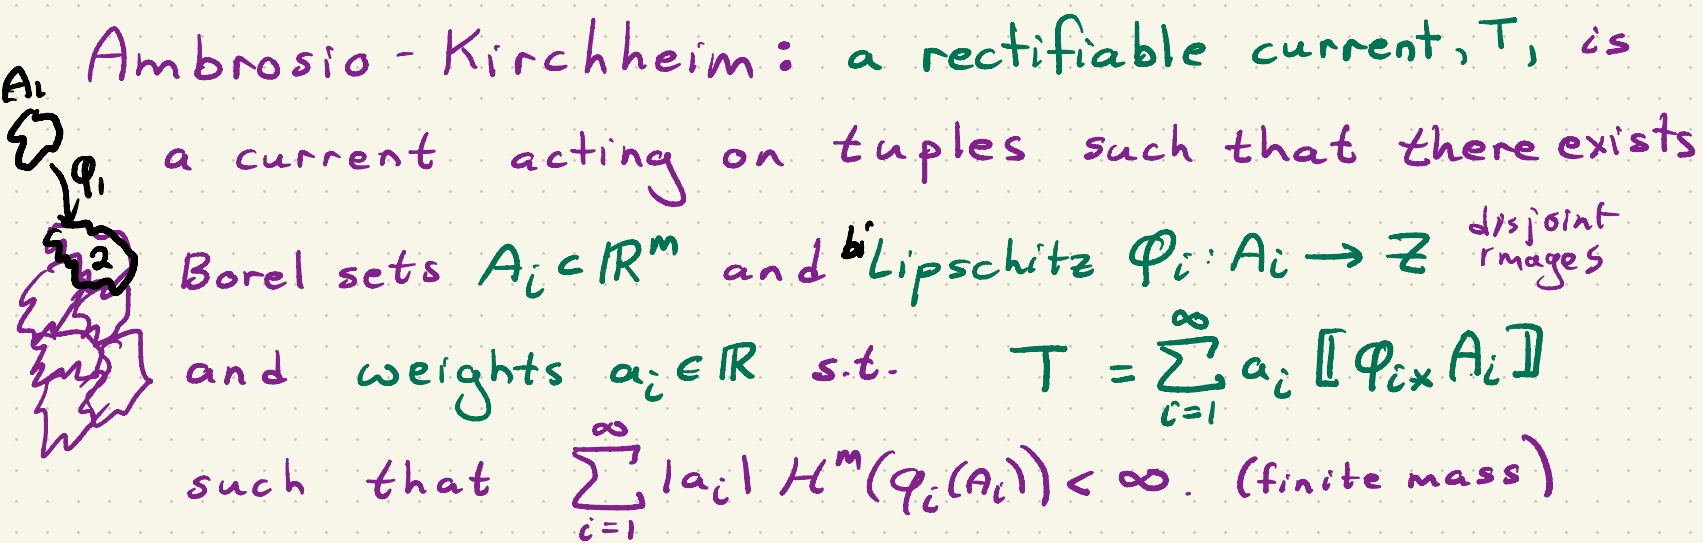 Ambrosio - Kirchheim: a rectifiable current, T, is
A₁
a current acting on tuples such that there exists
φ₁
disjoint
Borel sets Aᵢ ⊂ ℝᵐ and biLipschitz φᵢ: Aᵢ → Z
images
2
and weights aᵢ ∈ ℝ s.t. T = ∑_{i=1}^{∞} aᵢ ⟦φᵢ* Aᵢ⟧
such that ∑_{i=1}^{∞} |aᵢ| Hᵐ(φᵢ(Aᵢ)) < ∞. (finite mass)